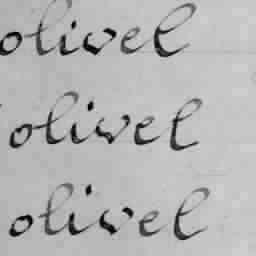 olivel
olivel
olivel